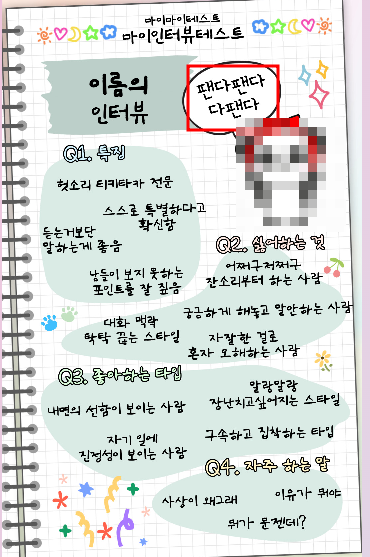 마이마이테스트
마이인터뷰테스트
이름의
인터뷰
팬다팬다
다팬다
Q1. 특징
헛소리 티키타카 전문
스스로 특별하다고
확신함
듣는거보단
말하는게 좋음
남들이 보지 못하는
포인트를 잘 짚음
Q2. 싫어하는 것
어쩌구저쩌구
잔소리부터 하는 사람
궁금하게 해놓고 말안하는 사람
대화 맥락
딱딱 끊는 스타일
자잘한 걸로
혼자 오해하는 사람
Q3. 좋아하는 타입
내면의 선함이 보이는 사람
말랑말랑
장난치고싶어지는 스타일
자기 일에
진정성이 보이는 사람
구속하고 집착하는 타입
Q4. 자주 하는 말
사상이 왜그래
이유가 뭐야
뭐가 문젠데?